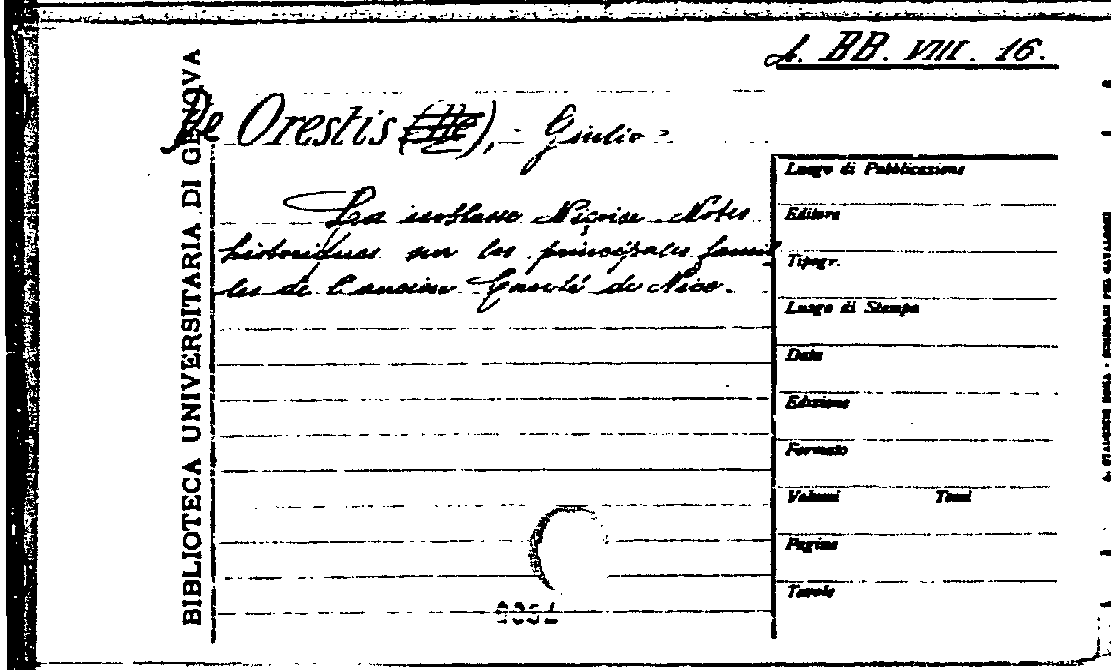 A. BB. VIII. 16.
BIBLIOTECA UNIVERSITARIA DI GENOVA
De Orestis), Giulio =
La noblesse Niçoise. Notes
historiques sur les principales famil
les de l'ancien Comté de Nice.
Luogo di Pubblicazione
Editore
Tipogr.
Luogo di Stampa
Data
Edizione
Formato
Volumi Tomi
Pagine
Tavole